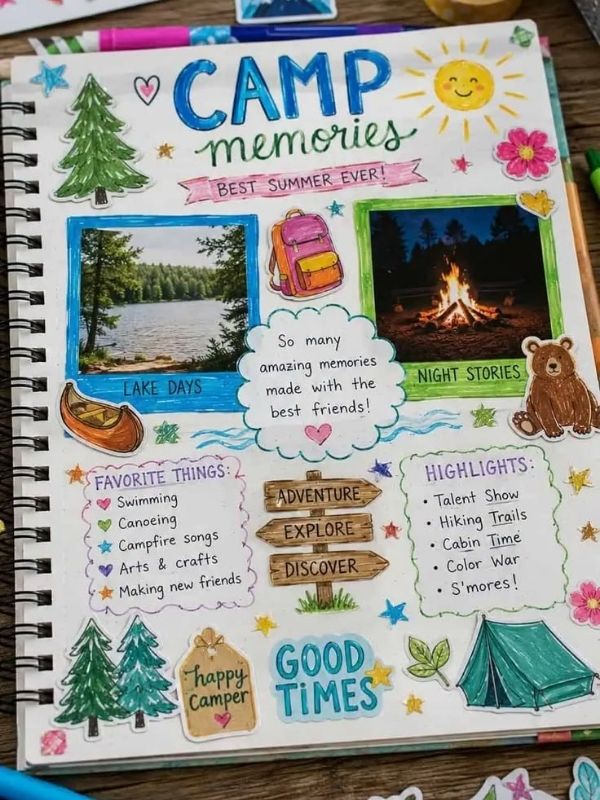 CAMP
memories
BEST SUMMER EVER!
LAKE DAYS
So many
amazing memories
made with the
best friends!
NIGHT STORIES
FAVORITE THINGS:
Swimming
Canoeing
Campfire songs
Arts & crafts
Making new friends
ADVENTURE
EXPLORE
DISCOVER
HIGHLIGHTS:
• Talent Show
• Hiking Trails
• Cabin Time
• Color War
• S'mores!
happy
camper
GOOD
TiMES